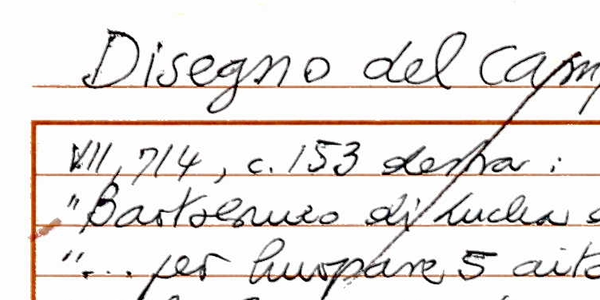 Disegno del Cam
VII, 714, c. 153 destra :
"Bartolomeo di Lucha
"... per 5